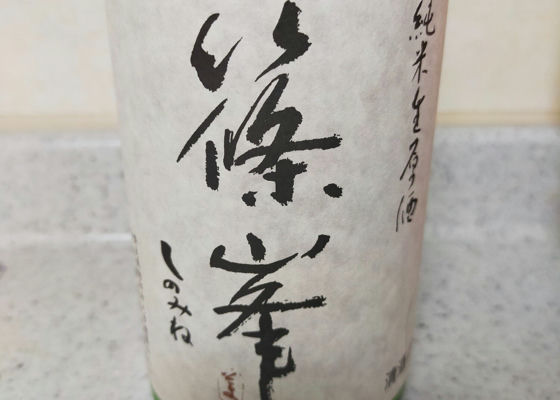 純米生原酒
篠峯
しのみね